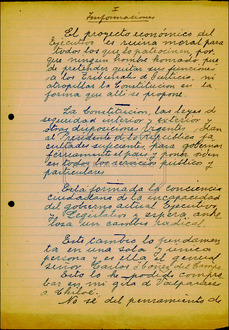 I
Informaciones
El proyecto económico del
Ejecutivo es ruina moral para
todos los que lo patrocinen, por
que ningún hombre honrado pue
de pretender quitar sus funciones
a los Tribunales de Justicia, ni
atropellar la Constitución en la
forma que allí se propone.
La Constitución, las leyes de
seguridad interior y exterior y
otras disposiciones vigentes, dan
al Presidente de la República fa
cultades suficientes para gobernar
férreamente el país y poner orden
en todos los servicios públicos y
particulares.
Está formada la conciencia
ciudadana de la incapacidad
del gobierno actual, Ejecutivo
y Legislativo y espera, ansi
losa un cambio radical.
Este cambio lo fundamen
ta en una sola y única
persona y es ella el general
señor Carlos Ibáñez del Campo
Esto lo he podido compro
bar en mi gira de Valparaíso
a Chiloé.
No sé del pensamiento de